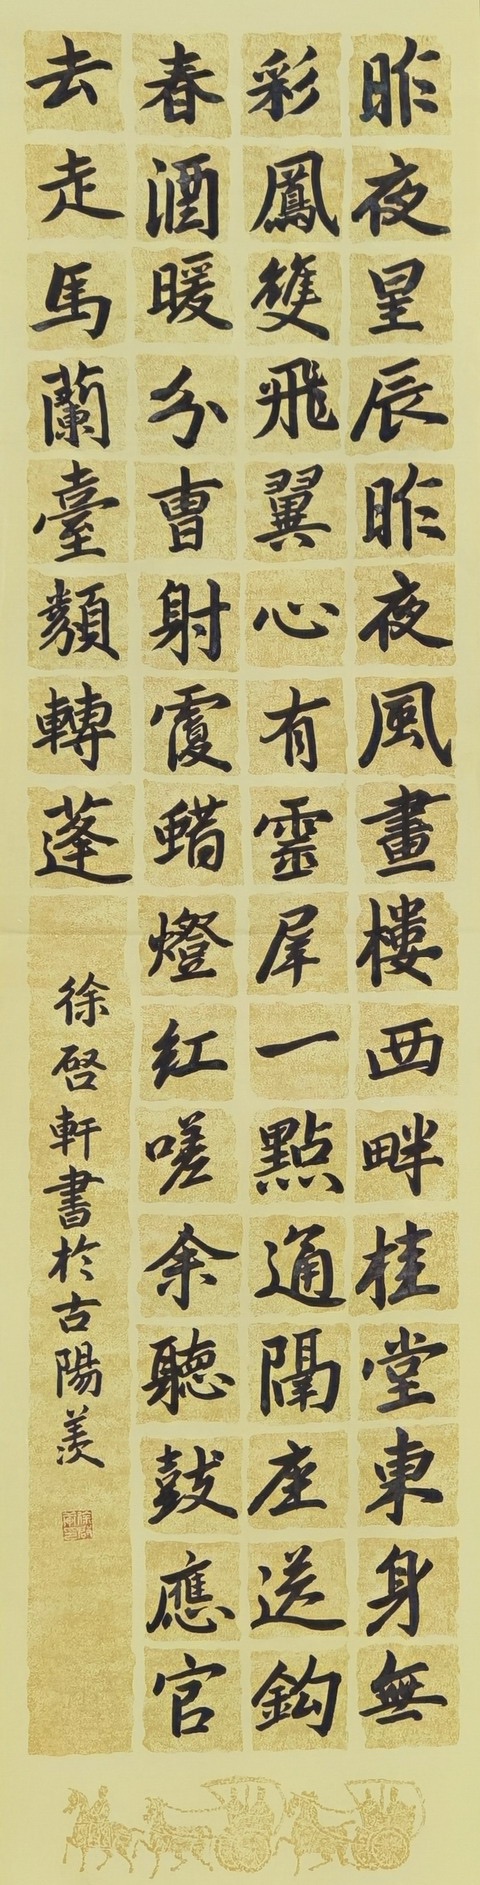 昨夜星辰昨夜風畫樓西畔桂堂東身無
彩鳳雙飛翼心有靈犀一點通隔座送鈎
春酒暖分曹射覆蜡燈紅嗟余聽鼓應官
去走馬蘭臺類轉蓬
徐啓軒書於古陽羨